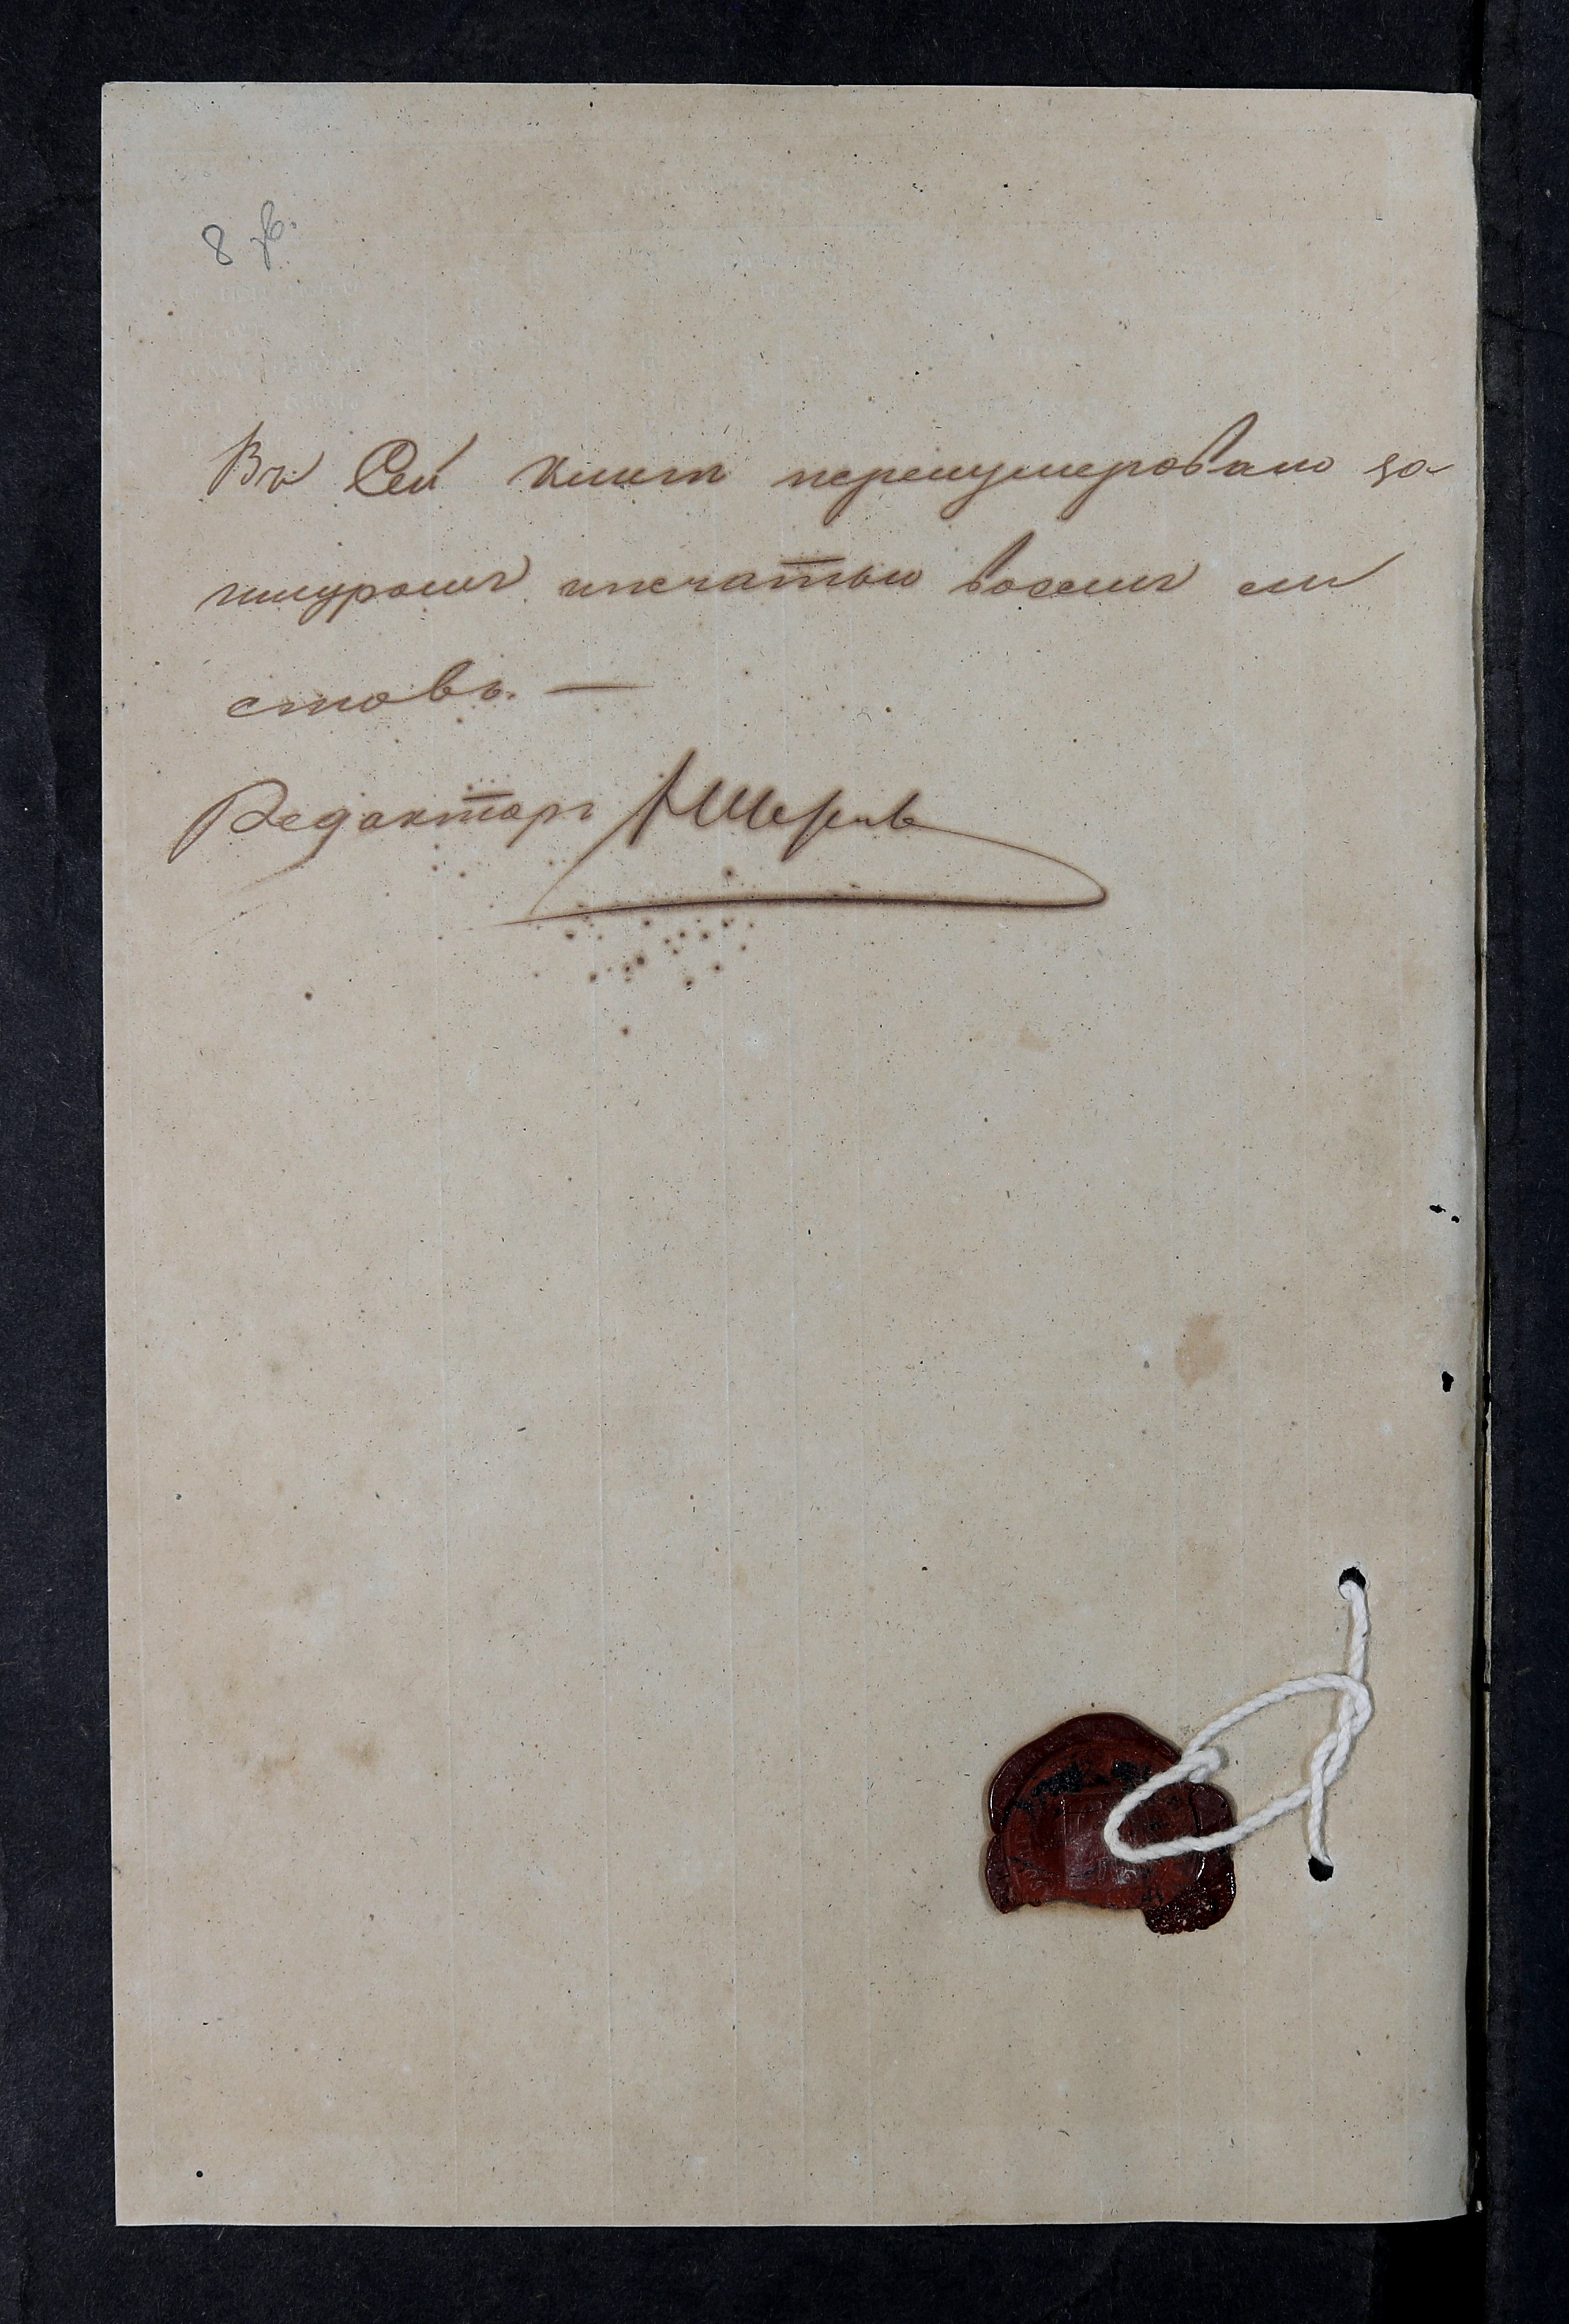 8
Въ Сей книги перенумеровано за
шнуромъ ипечатью восемъ ли
стовъ. —
Редакторъ